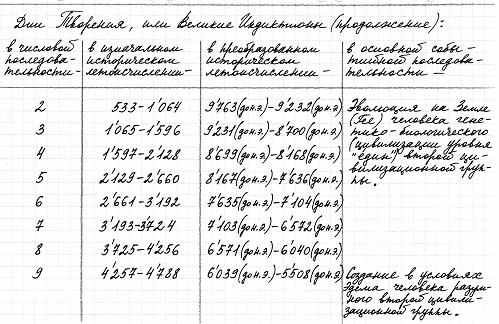 Дни Творения, или Великие Индиктионы (продолжение):
в числовой последова- тельности- | в изначальном историческом летоисчислении- | в преобразованном историческом летоисчислении- | в основной собы- тийной последова- тельности-
2 533-1'064 9'763(до н.э.)-9'232(до н.э.) Эволюция на Земле
3 1'065-1'596 9'231(до н.э.)-8'700(до н.э.) (Гее) человека гене-
4 1'597-2'128 8'699(до н.э.)-8'168(до н.э.) тико-биологического
5 2'129-2'660 8'167(до н.э.)-7'636(до н.э.) (цивилизации уровня
6 2'661-3'192 7'635(до н.э.)-7'104(до н.э.) "един") второй ци-
7 3'193-3'724 7'103(до н.э.)-6'572(до н.э.) вилизационной груп-
8 3'725-4'256 6'571(до н.э.)-6'040(до н.э.) пы.
9 4'257-4'788 6'039(до н.э.)-5'508(до н.э.) Создание в условиях
Эдема человека разум-
ного второй цивили-
зационной группы.